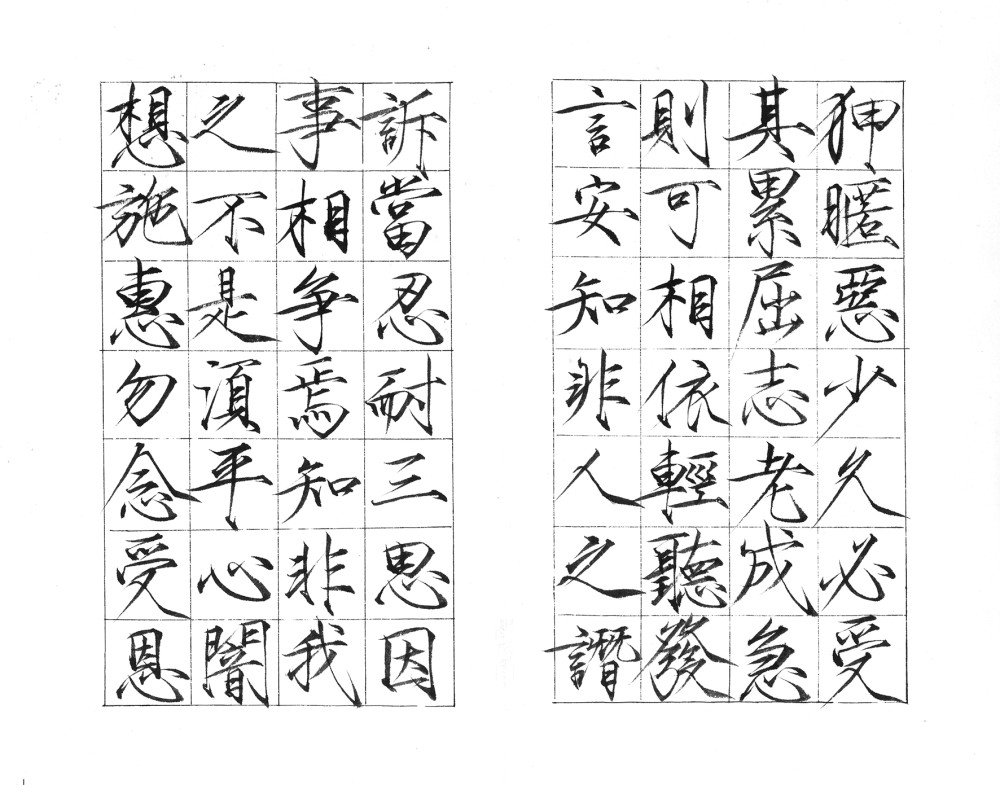 狎暱惡少久必受
其累屈志老成急
則可相依輕聽發
言安知非人之譖
訴當忍耐三思因
事相争焉知非我
之不是湏平心闇
想施惠勿念受恩